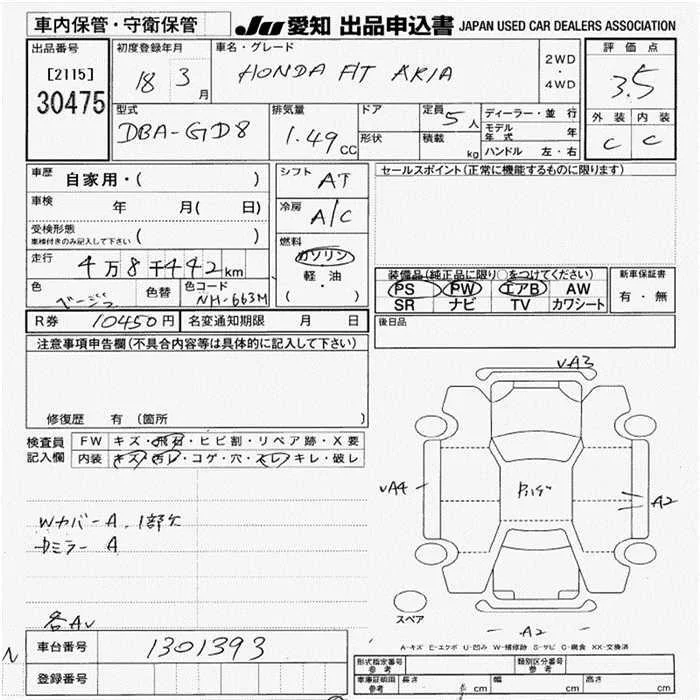 車内保管・守衛保管 JU 愛知 出品申込書 JAPAN USED CAR DEALERS ASSOCIATION
出品番号
[2115]
30475
初度登録年月
18 3月
車名・グレード
HONDA FIT ARIA
2WD
・
4WD
評価点
3.5
外装 内装
C C
型式
DBA-GD8
排気量
1.49 CC
ドア
形状
定員 5人
積載 kg
ディーラー・並行
モデル年式 年
ハンドル 左・右
車歴 自家用・( )
車検 年 月( 日)
受検形態
車検付きのみ記入して下さい ( )
走行 4万8千442km
色 ベージュ 色替 色コード NH-663M
シフト AT
冷房 A/C
燃料
ガソリン
・
軽・油
( ・ )
セールスポイント(正常に機能するものに限ります)
装備品(純正品に限り○をつけてください)
PS PW エアB AW
SR ナビ TV カワシート
新車保証書
有・無
R券 10450円 名変通知期限 月 日
後日品
注意事項申告欄(不具合内容等は具体的に記入して下さい)
修復歴 有 (箇所 )
検査員記入欄
FW キズ・飛石・ヒビ割・リペア跡・X要
内装 キズ・汚レ・コゲ・穴・スレ・キレ・破レ
Wカバー A、1部欠
ミラー A
各AU
車台番号 1301393
登録番号
N
UA3
UA4
A2
スペア
A2
A-キズ E-エクボ U-凹み W-補修跡 S-サビ C-腐食 XX-交換済
形式指定番号 参考
類別区分番号 参考
車庫証明用 参考 長さ cm 幅 cm 高さ cm